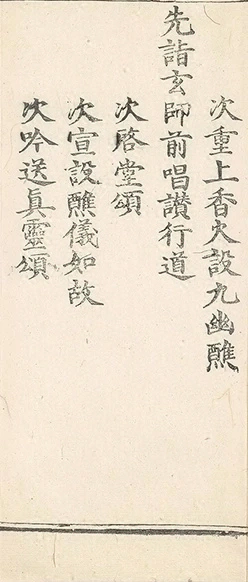 次重上香次設九幽醮
先詣玄師前唱讃行道
次啓堂頌
次宣設醮儀如故
次吟送真靈頌